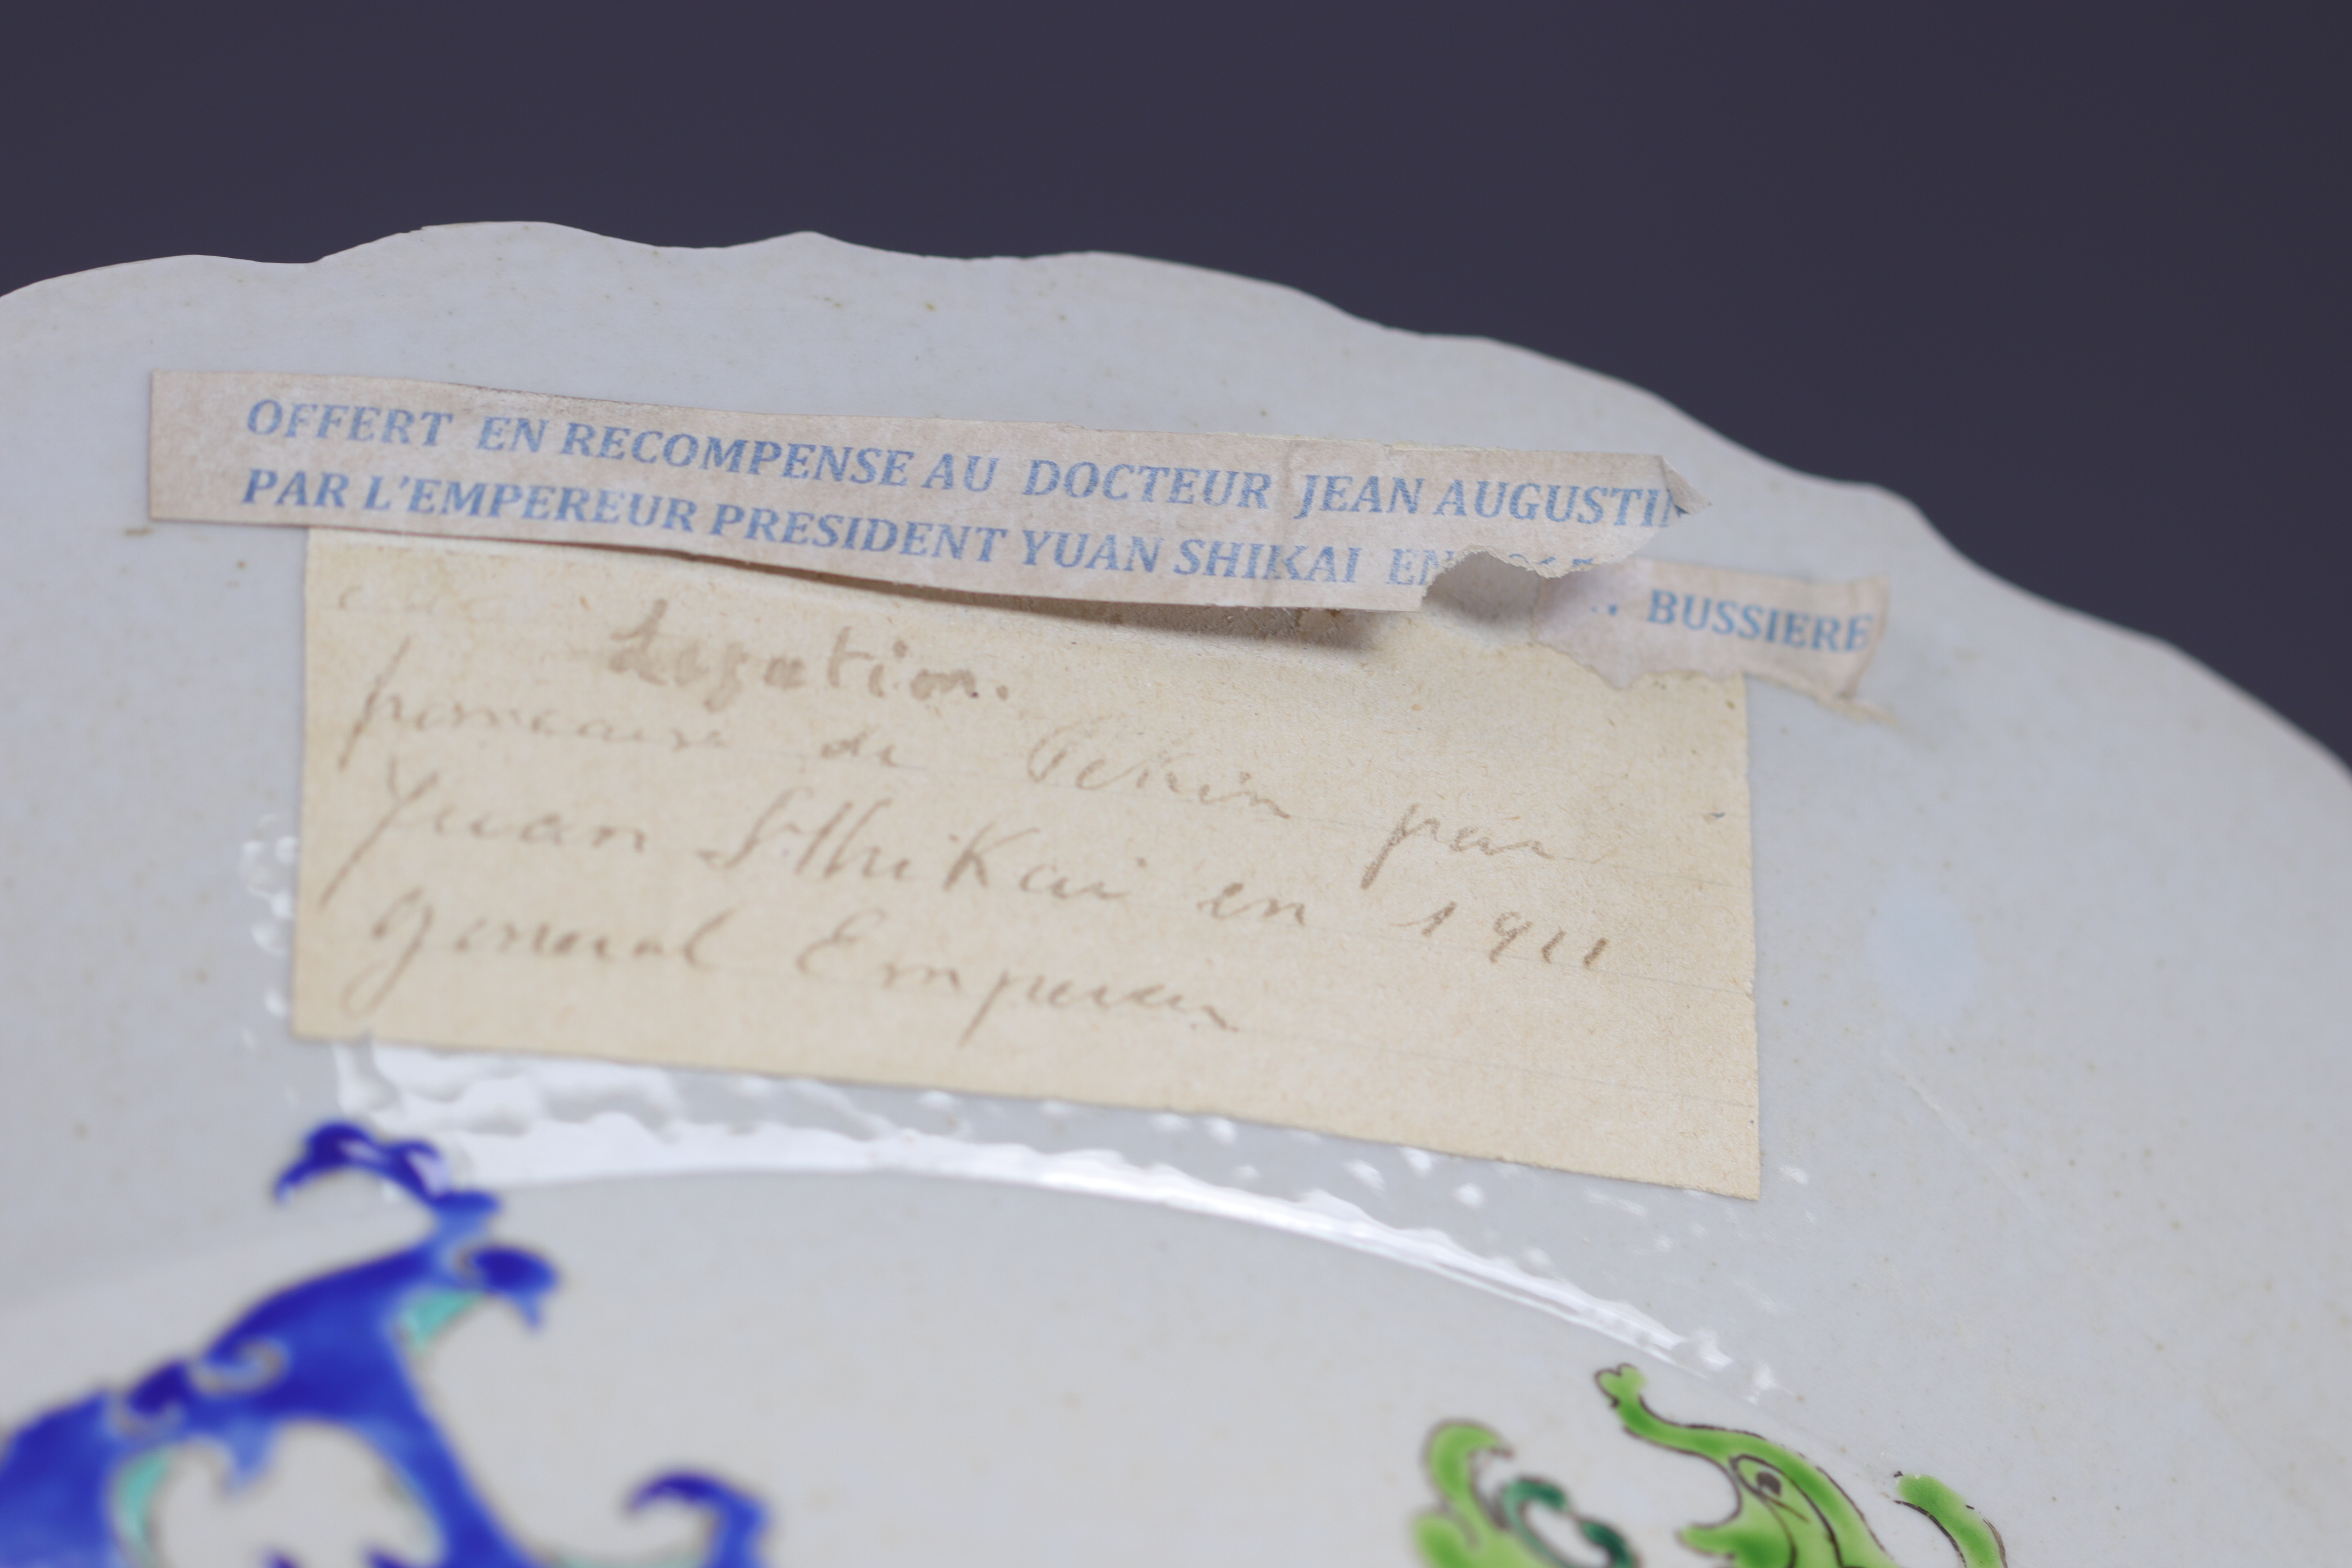 OFFERT EN RECOMPENSE AU DOCTEUR JEAN AUGUSTIN BUSSIERE
PAR L'EMPEREUR PRESIDENT YUAN SHIKAI EN
Legation.
francaise de Pekin par
Yuan SHhiKai en 1911
general Empereur